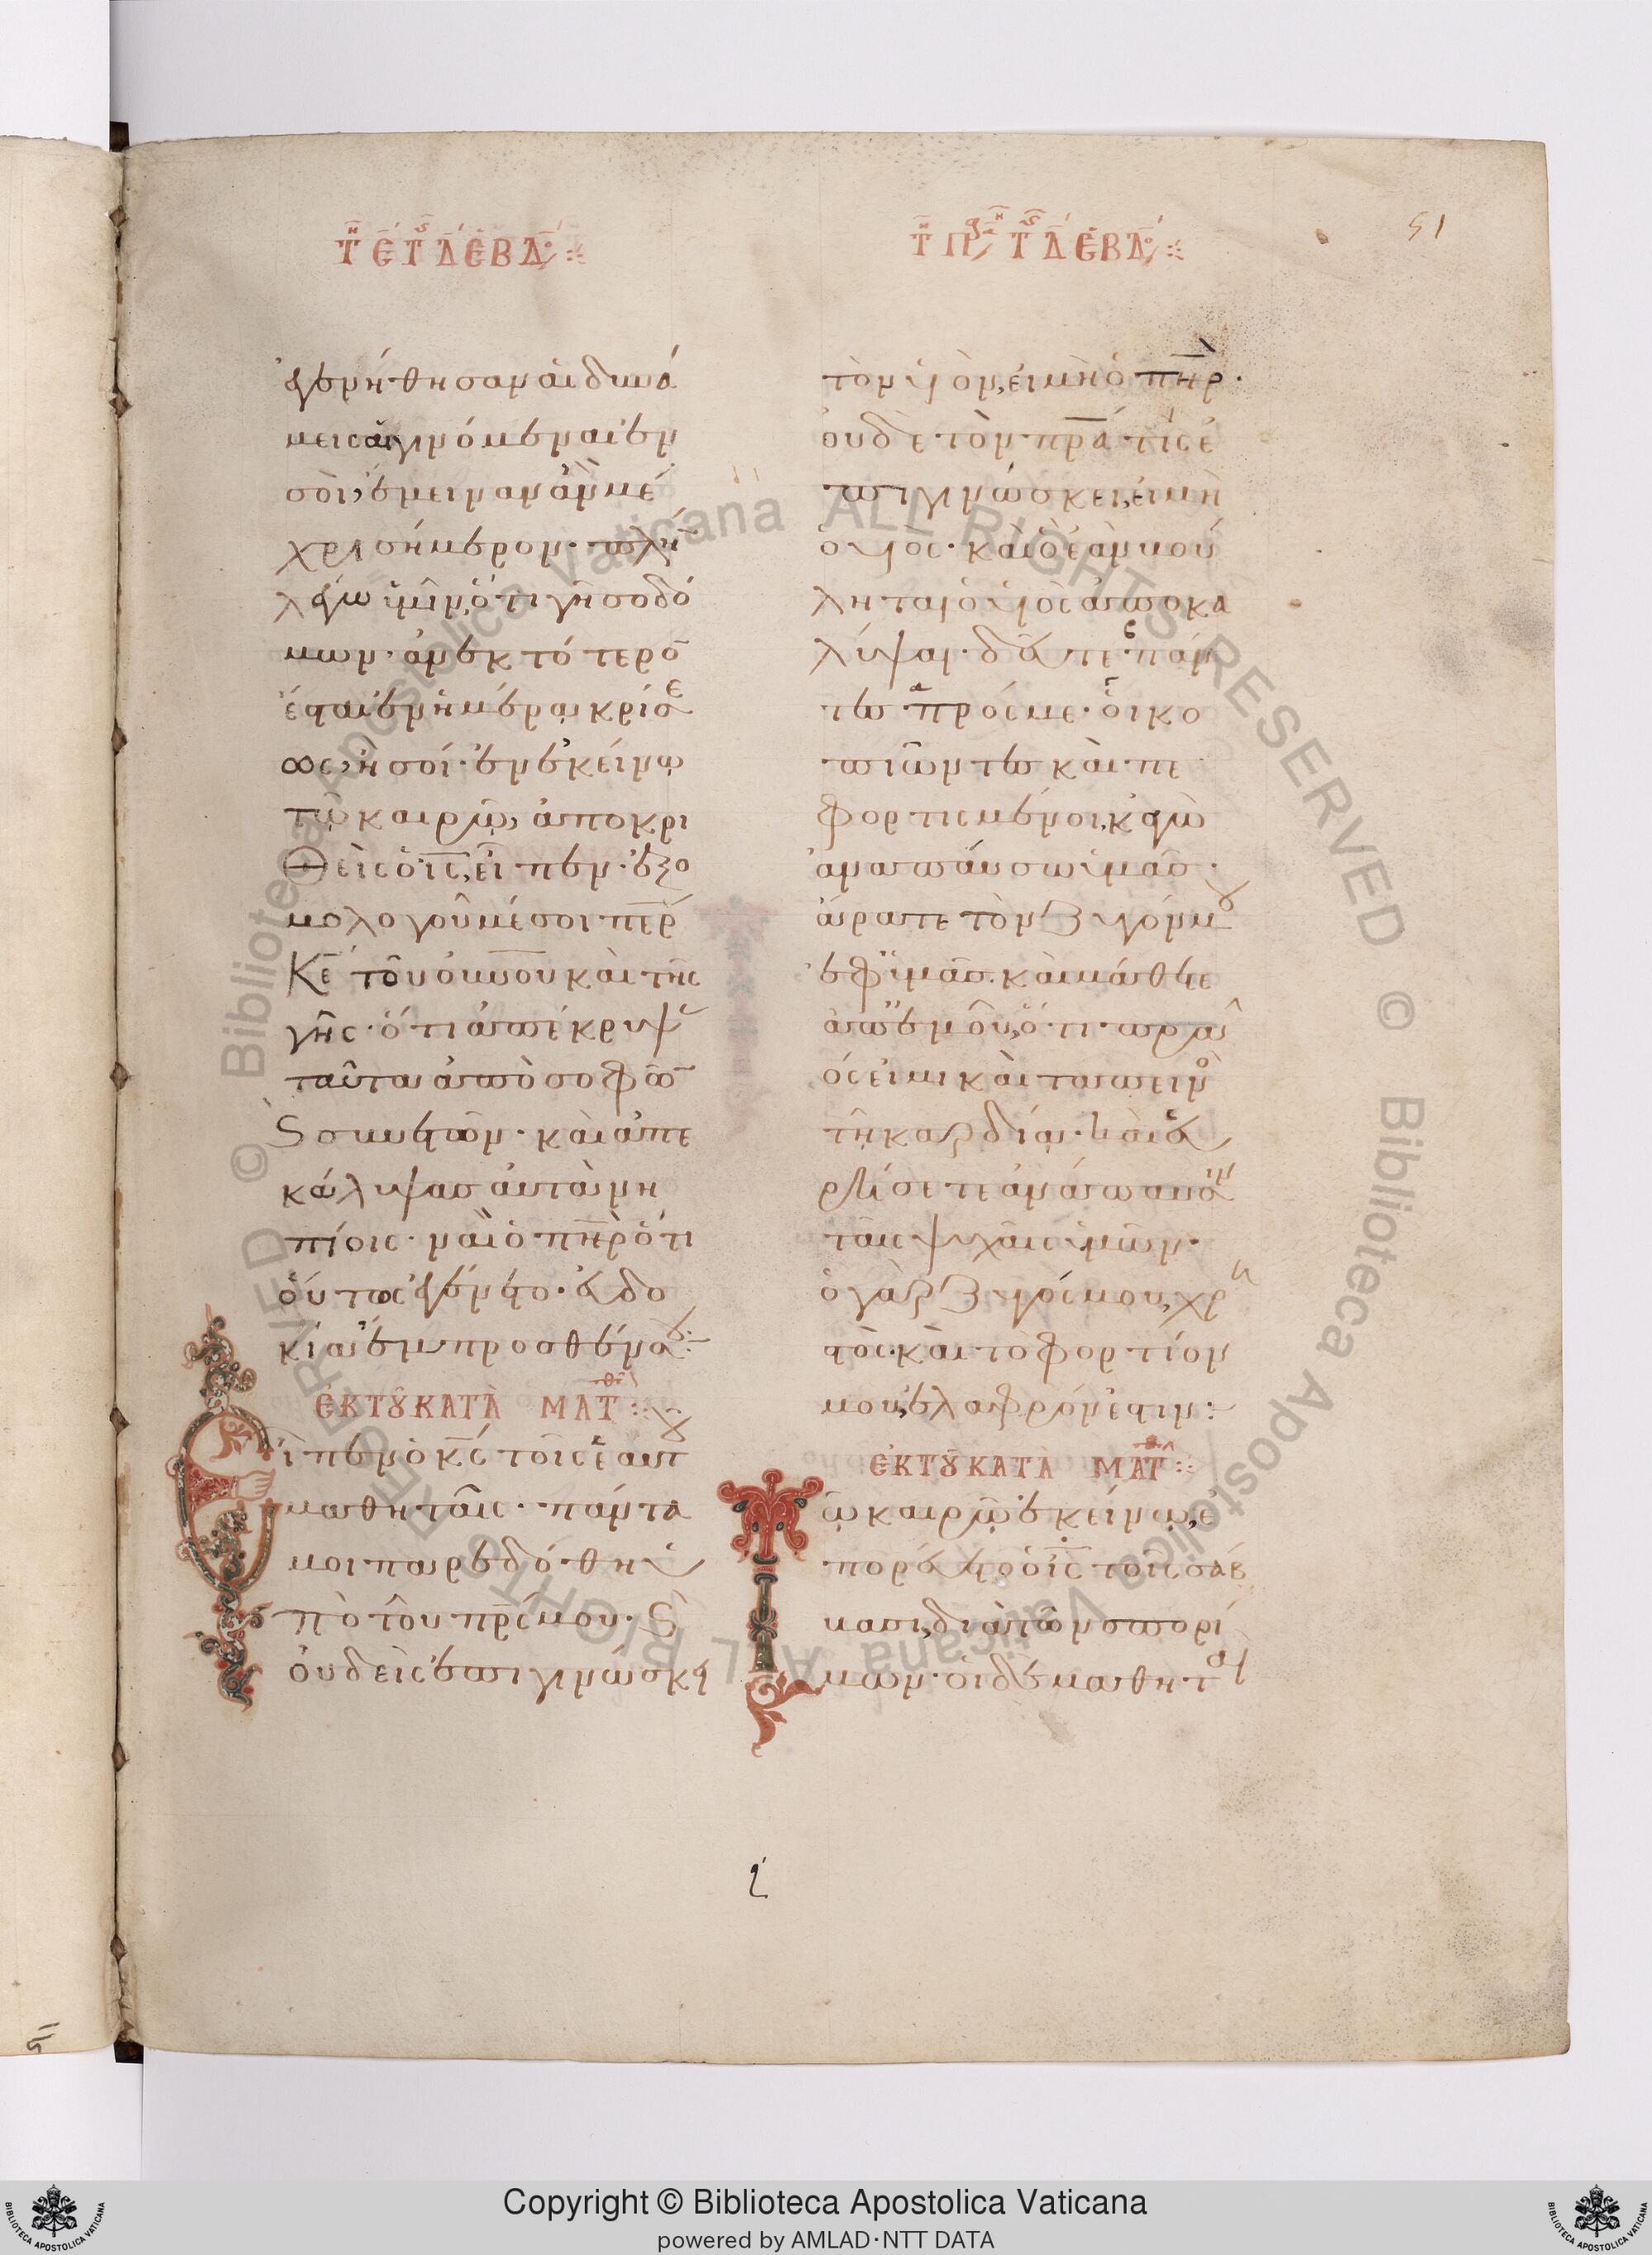 Τῇ ε̄ τ̄ς Δ̄ ἑβδ
ἐγενήθησαν αἱ δυνά
μεις αἱ γινόμεναι ἐν
σοὶ, ἔμειναν ἂν μέ
χρι σήμερον· πλὴ
λέγω ὑμῖν, ὅτι γῆ σοδό
μων, ἀνεκτότερο̅
ἔσται ἐν ἡμέρᾳ κρίσε
ως, ἢ σοί· ἐν ἐκείνῳ
τῷ καιρῷ, ἀποκρι
θεὶς ὁ ις̅, εἶπεν· ἐξο
μολογοῦμαί σοι περ̅
κε̅ τοῦ ουνου καὶ τῆς
γῆς· ὅτι ἀπέκρυψ
ταῦτα ἀπὸ σοφῶ̅
ϗ συνετῶν· καὶ ἀπε
κάλυψας αὐτὰ νη
πίοις· ναὶ ὁ πηρ̅ ὅτι
οὕτως ἐγένετο· εὐδο
κία ἔμπροσθέν σου:
ἐκ τοῦ κατὰ Ματθ
ἶπεν ὁ κς̅ τοῖς ἑαυτοῦ
μαθηταῖς· πάντα
μοι παρεδόθη ὑ
πὸ τοῦ πρς̅ μου· ϗ
οὐδεὶς ἐπιγινώσκει
Τῇ πρ̅ τ̄ς Δ̄ ἑβδ
51
τὸν υἱὸν, εἰ μὴ ὁ πηρ̅·
οὐδὲ τὸν πρα̅ τίς ἐ
πιγινώσκει, εἰ μὴ
ὁ υἱὸς· καὶ ᾧ ἐὰν βού
ληται ὁ υἱὸς ἀποκα
λύψαι· δεῦτε πάν
τες πρός με· οἱ κο
πιῶντες καὶ πε
φορτισμένοι, κἀγὼ
ἀναπαύσω ὑμᾶς·
ἄρατε τὸν ζυγόν μου
ἐφ' ὑμᾶς· καὶ μάθετε
ἀπ' ἐμοῦ, ὅτι πρᾶ
ός εἰμι καὶ ταπεινὸς
τῇ καρδίᾳ· καὶ εὑ
ρήσετε ἀνάπαυσιν
ταῖς ψυχαῖς ὑμῶν·
ὁ γὰρ ζυγός μου, χρη
στὸς· καὶ τὸ φορτίον
μου, ἐλαφρόν ἐστιν:
ἐκ τοῦ κατὰ Ματθ
ῷ καιρῷ ἐκείνῳ, ἐ
πορεύετο ὁ ις̅ τοῖς σάβ
βασι, διὰ τῶν σπορί
μων· οἱ δὲ μαθηταὶ